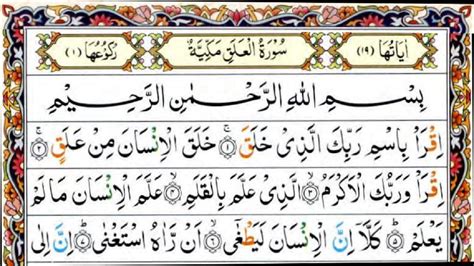 اٰيَاتُهَا (١٩) سُوْرَةُ الْعَلَقِ مَكِّيَّةٌ رُكُوْعُهَا (١)
بِسْمِ اللهِ الرَّحْمٰنِ الرَّحِيْمِ
اِقْرَاْ بِاسْمِ رَبِّكَ الَّذِیْ خَلَقَ ۚ﴿١﴾ خَلَقَ الْاِنْسَانَ مِنْ عَلَقٍ ۚ﴿٢﴾
اِقْرَاْ وَرَبُّكَ الْاَكْرَمُ ۙ﴿٣﴾ الَّذِیْ عَلَّمَ بِالْقَلَمِ ۙ﴿٤﴾ عَلَّمَ الْاِنْسَانَ مَا لَمْ
يَعْلَمْ ؕ﴿٥﴾ كَلَّاۤ اِنَّ الْاِنْسَانَ لَيَطْغٰۤی ۙ﴿٦﴾ اَنْ رَّاٰهُ اسْتَغْنٰی ؕ﴿٧﴾ اِنَّ اِلٰی